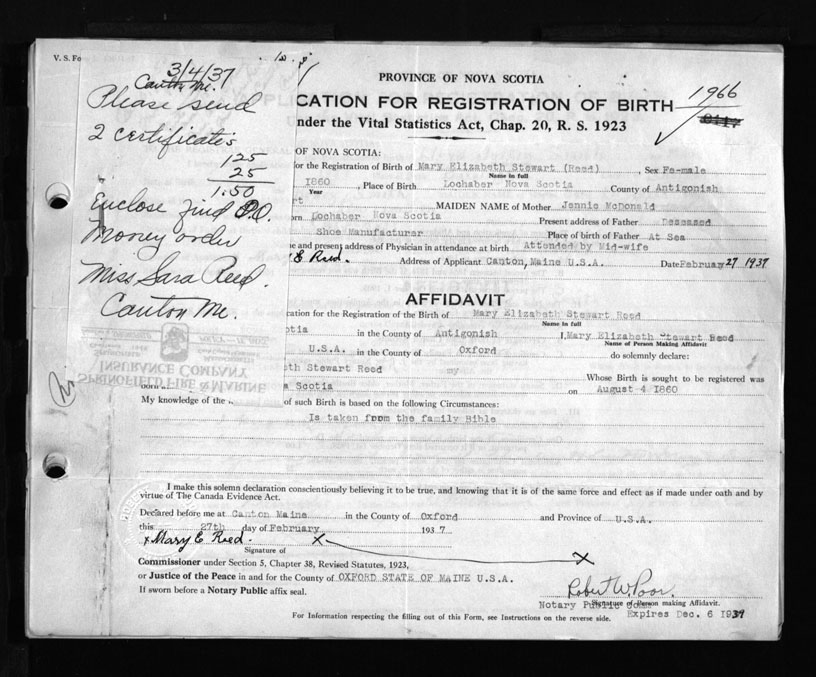 V. S. Fo
3/4/37
Canton Me.
Please send
2 certificates
125
25
1.50
Enclose find P.O.
Money order
Miss Sara Reed.
Canton Me.
INSURANCE COMPANY
SPRINGFIELD FIRE & MARINE
PROVINCE OF NOVA SCOTIA
CATION FOR REGISTRATION OF BIRTH
1966
nder the Vital Statistics Act, Chap. 20, R. S. 1923
OF NOVA SCOTIA:
for the Registration of Birth of Mary Elizabeth Stewart (Reed), Sex Fe-male
Name in full
1860, Place of Birth Lochaber Nova Scotia County of Antigonish
Year
rt MAIDEN NAME of Mother Jennie McDonald
orn Lochaber Nova Scotia Present address of Father Deseased
Shoe Manufacturer Place of birth of Father At Sea
ne and present address of Physician in attendance at birth Attended by Mid-wife
y E Reed. Address of Applicant Canton, Maine U.S.A. Date February 27 1937
AFFIDAVIT
cation for the Registration of the Birth of Mary Elizabeth Stewart Reed
Name in full
otia in the County of Antigonish I, Mary Elizabeth Stewart Reed
Name of Person Making Affidavit
U.S.A. in the County of Oxford do solemnly declare:
eth Stewart Reed my Whose Birth is sought to be registered was
born a Scotia on August 4 1860
My knowledge of the of such Birth is based on the following Circumstances:
Is taken from the family Bible
I make this solemn declaration conscientiously believing it to be true, and knowing that it is of the same force and effect as if made under oath and by
virtue of The Canada Evidence Act.
Declared before me at Canton Maine in the County of Oxford and Province of U.S.A.
this 27th day of February 1937
x Mary E Reed. x x
Signature of
Commissioner under Section 5, Chapter 38, Revised Statutes, 1923,
or Justice of the Peace in and for the County of OXFORD STATE OF MAINE U.S.A.
If sworn before a Notary Public affix seal.
Robert W. Poor.
Signature of Person making Affidavit.
Notary Public
Expires Dec. 6 1937
For Information respecting the filling out of this Form, see Instructions on the reverse side.